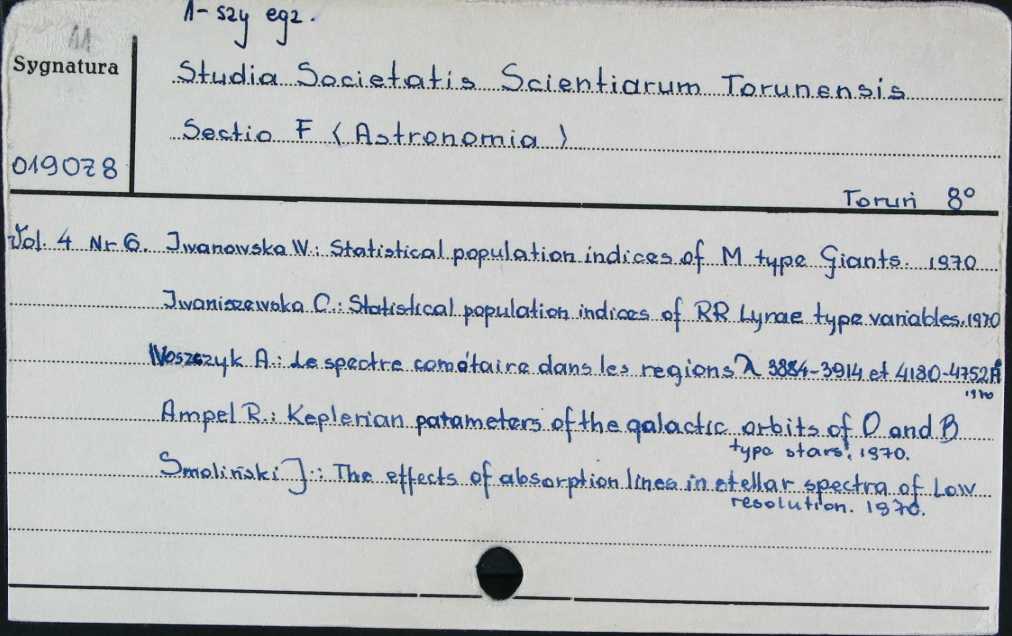 1-szy egz.
11
Sygnatura
Studia Societatis Scientiarum Torunensis
Sectio F (Astronomia)
019078
Toruń 8°
Vol. 4 Nr 6. Iwanowska W.: Statistical population indices of M type Giants. 1970
Iwaniszewska C.: Statistical population indices of RR Lyrae type variables. 1970
Woszczyk A.: Le spectre cométaire dans les regions λ 3884-3914 et 4180-4752Å
1970
Ampel R.: Keplerian parameters of the galactic orbits of O and B
type stars. 1970.
Smoliński J.: The effects of absorption lines in stellar spectra of Low
resolution. 1970.